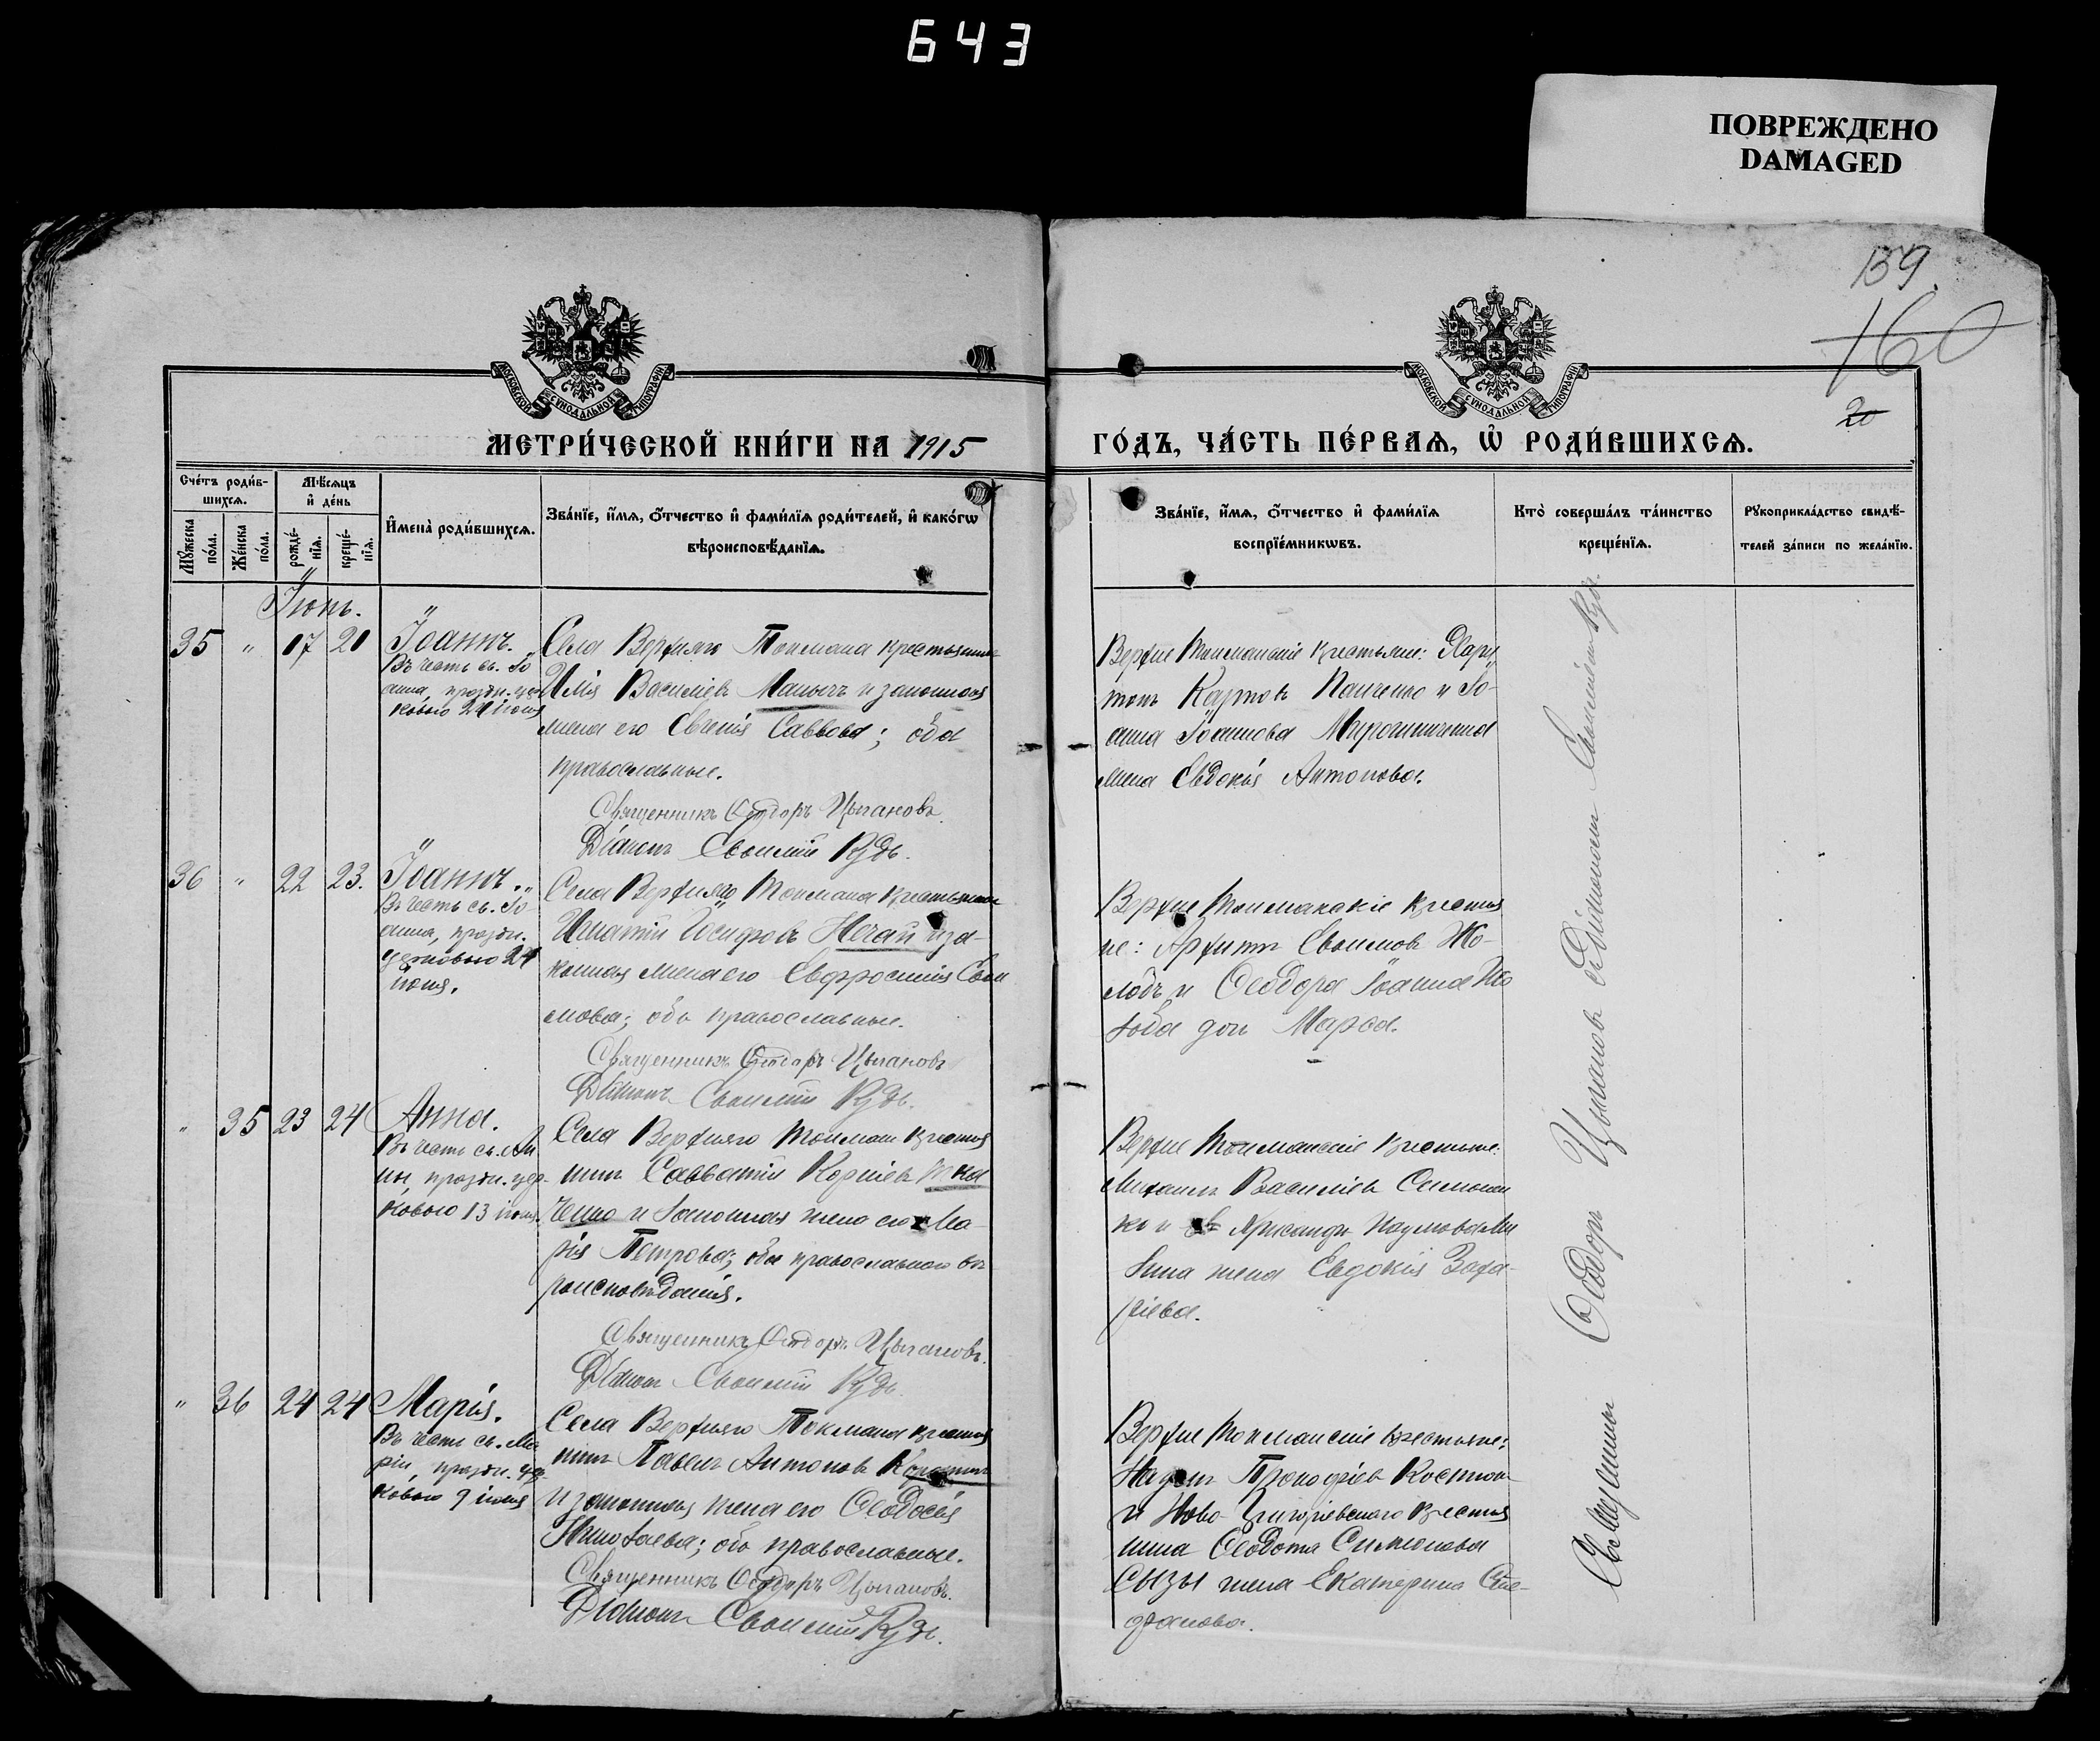 643
ПОВРЕЖДЕНО
DAMAGED
139.
160
20
МОСКОВСКОЙ СУНОДАЛЬНОЙ ТИПОГРАФІИ
МОСКОВСКОЙ СУНОДАЛЬНОЙ ТИПОГРАФІИ
МЕТРИ́ЧЕСКОЙ КНИ́ГИ НА 1915
ГО́ДЪ, ЧА́СТЬ ПЕ́РВАѦ, Ѡ҆ РОДИ́ВШИХСѦ.
Сче́тъ роди́в-
шихсѧ.
Мꙋ́жеска по́ла.
Же́нска по́ла.
Мѣ́сѧцъ
и҆ де́нь
рожде́-нїѧ.
креще́-нїѧ.
И҆мена̀ роди́вшихсѧ.
Зва́нїе, и҆́мѧ, ѻ҆́тчество и҆ фами́лїѧ роди́телей, и҆ како́гѡ
вѣроисповѣ́данїѧ.
Зва́нїе, и҆́мѧ, ѻ҆́тчество и҆ фами́лїѧ
воспрїе́мникѡвъ.
Кто̀ соверша́лъ та́инство
креще́нїѧ.
Рꙋкоприкла́дство свидѣ́-
телей за́писи по жела́нїю.
Іюнь.
35 " 17 20 Іоаннъ.
Въ честь св. Іо
анна, праздн. цер
ковью 24 іюня
Села Верхняго Токмака крестьянинъ
Илія Василіевъ Малычъ и законная
жена его Евгенія Саввова; оба
православные.
Священникъ Ѳеодоръ Цыгановъ.
Діаконъ Евѳимій Кудь.
Верхне Токмакскіе крестьяне: Хари
тонъ Карповъ Панченко и Іо-
анна Іоаннова Мирошниченка
жена Евдокія Антонова.
36 " 22 23. Іоаннъ.
Въ честь св. Іо
анна, праздн.
церковью 24
іюня.
Села Верхняго Токмака крестьянинъ
Игнатій Іосифовъ Нечай и за-
конная жена его Евфросинія Евѳи
мова; оба православные.
Священникъ Ѳеодоръ Цыгановъ
Діаконъ Евѳимій Кудь.
Верхне Токмакскіе крестья
не: Архипъ Евѳимовъ Жо-
лобъ и Ѳеодора Іоанна Жо
лоба дочь Марѳа.
" 35 23 24 Анна.
Въ честь св. Ан
ны, праздн. цер-
ковью 13 іюня.
Села Верхняго Токмака крестья
нинъ Савватій Корніевъ Тка
ченко и законная жена его Ма-
рія Петрова; оба православнаго вѣ
роисповѣданія.
Священникъ Ѳеодоръ Цыгановъ.
Діаконъ Евѳимій Кудь.
Верхне Токмакскіе крестьяне:
Михаилъ Василіевъ Симонен
ко и Наумова Ми
жена Евдокія Заха-
ріева.
" 36 24 24 Марія.
Въ честь св. Ма
ріи, праздн. цер
ковью 9 іюня
Села Верхняго Токмака крестья
нинъ Павелъ Антоновъ
и законная жена его Ѳеодосія
Николаева; оба православные.
Священникъ Ѳеодоръ Цыгановъ.
Діаконъ Евѳимій Кудь.
Верхне Токмакскіе крестьяне:
Наумъ Прокофіевъ
и Ново-Григорьевскаго крестья
нина Ѳеодота Симеонова
Сызы жена Екатерина Сте-
фанова.
Священникъ Ѳеодоръ Цыгановъ съ Діакономъ Евѳиміемъ Кудь.